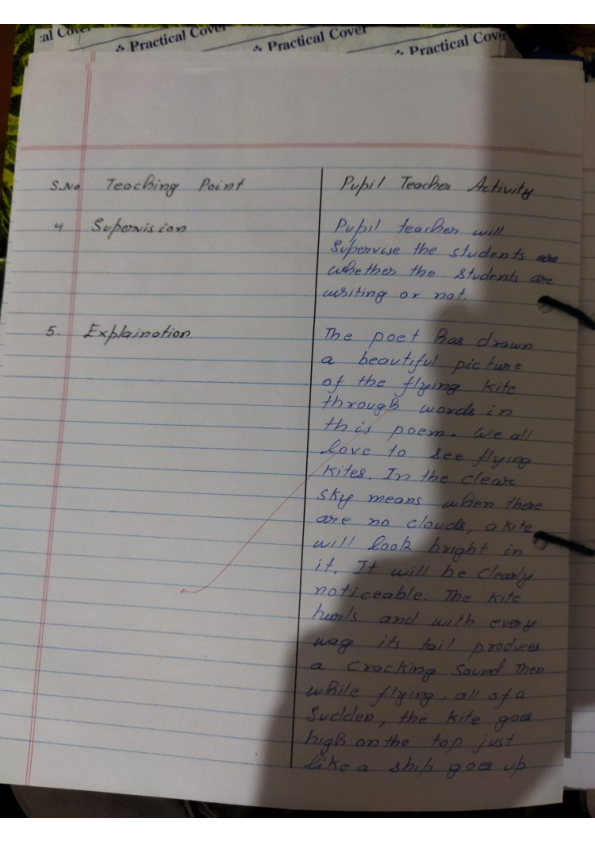 al Cover
Practical Cover
Practical Cover
Practical Cover
S.No Teaching Point Pupil Teacher Activity
4. Supervision Pupil teacher will
Supervise the students
whether the students are
writing or not.
5. Explaination The poet has drawn
a beautiful picture
of the flying kite
through words in
this poem. We all
love to see flying
kites. In the clear
sky means when there
are no clouds, a kite
will look bright in
it. It will be clearly
noticeable. The kite
and with every
wag its tail produces
a cracking Sound Then
while flying, all of a
Sudden, the kite goes
high on the top just
like a ship goes up